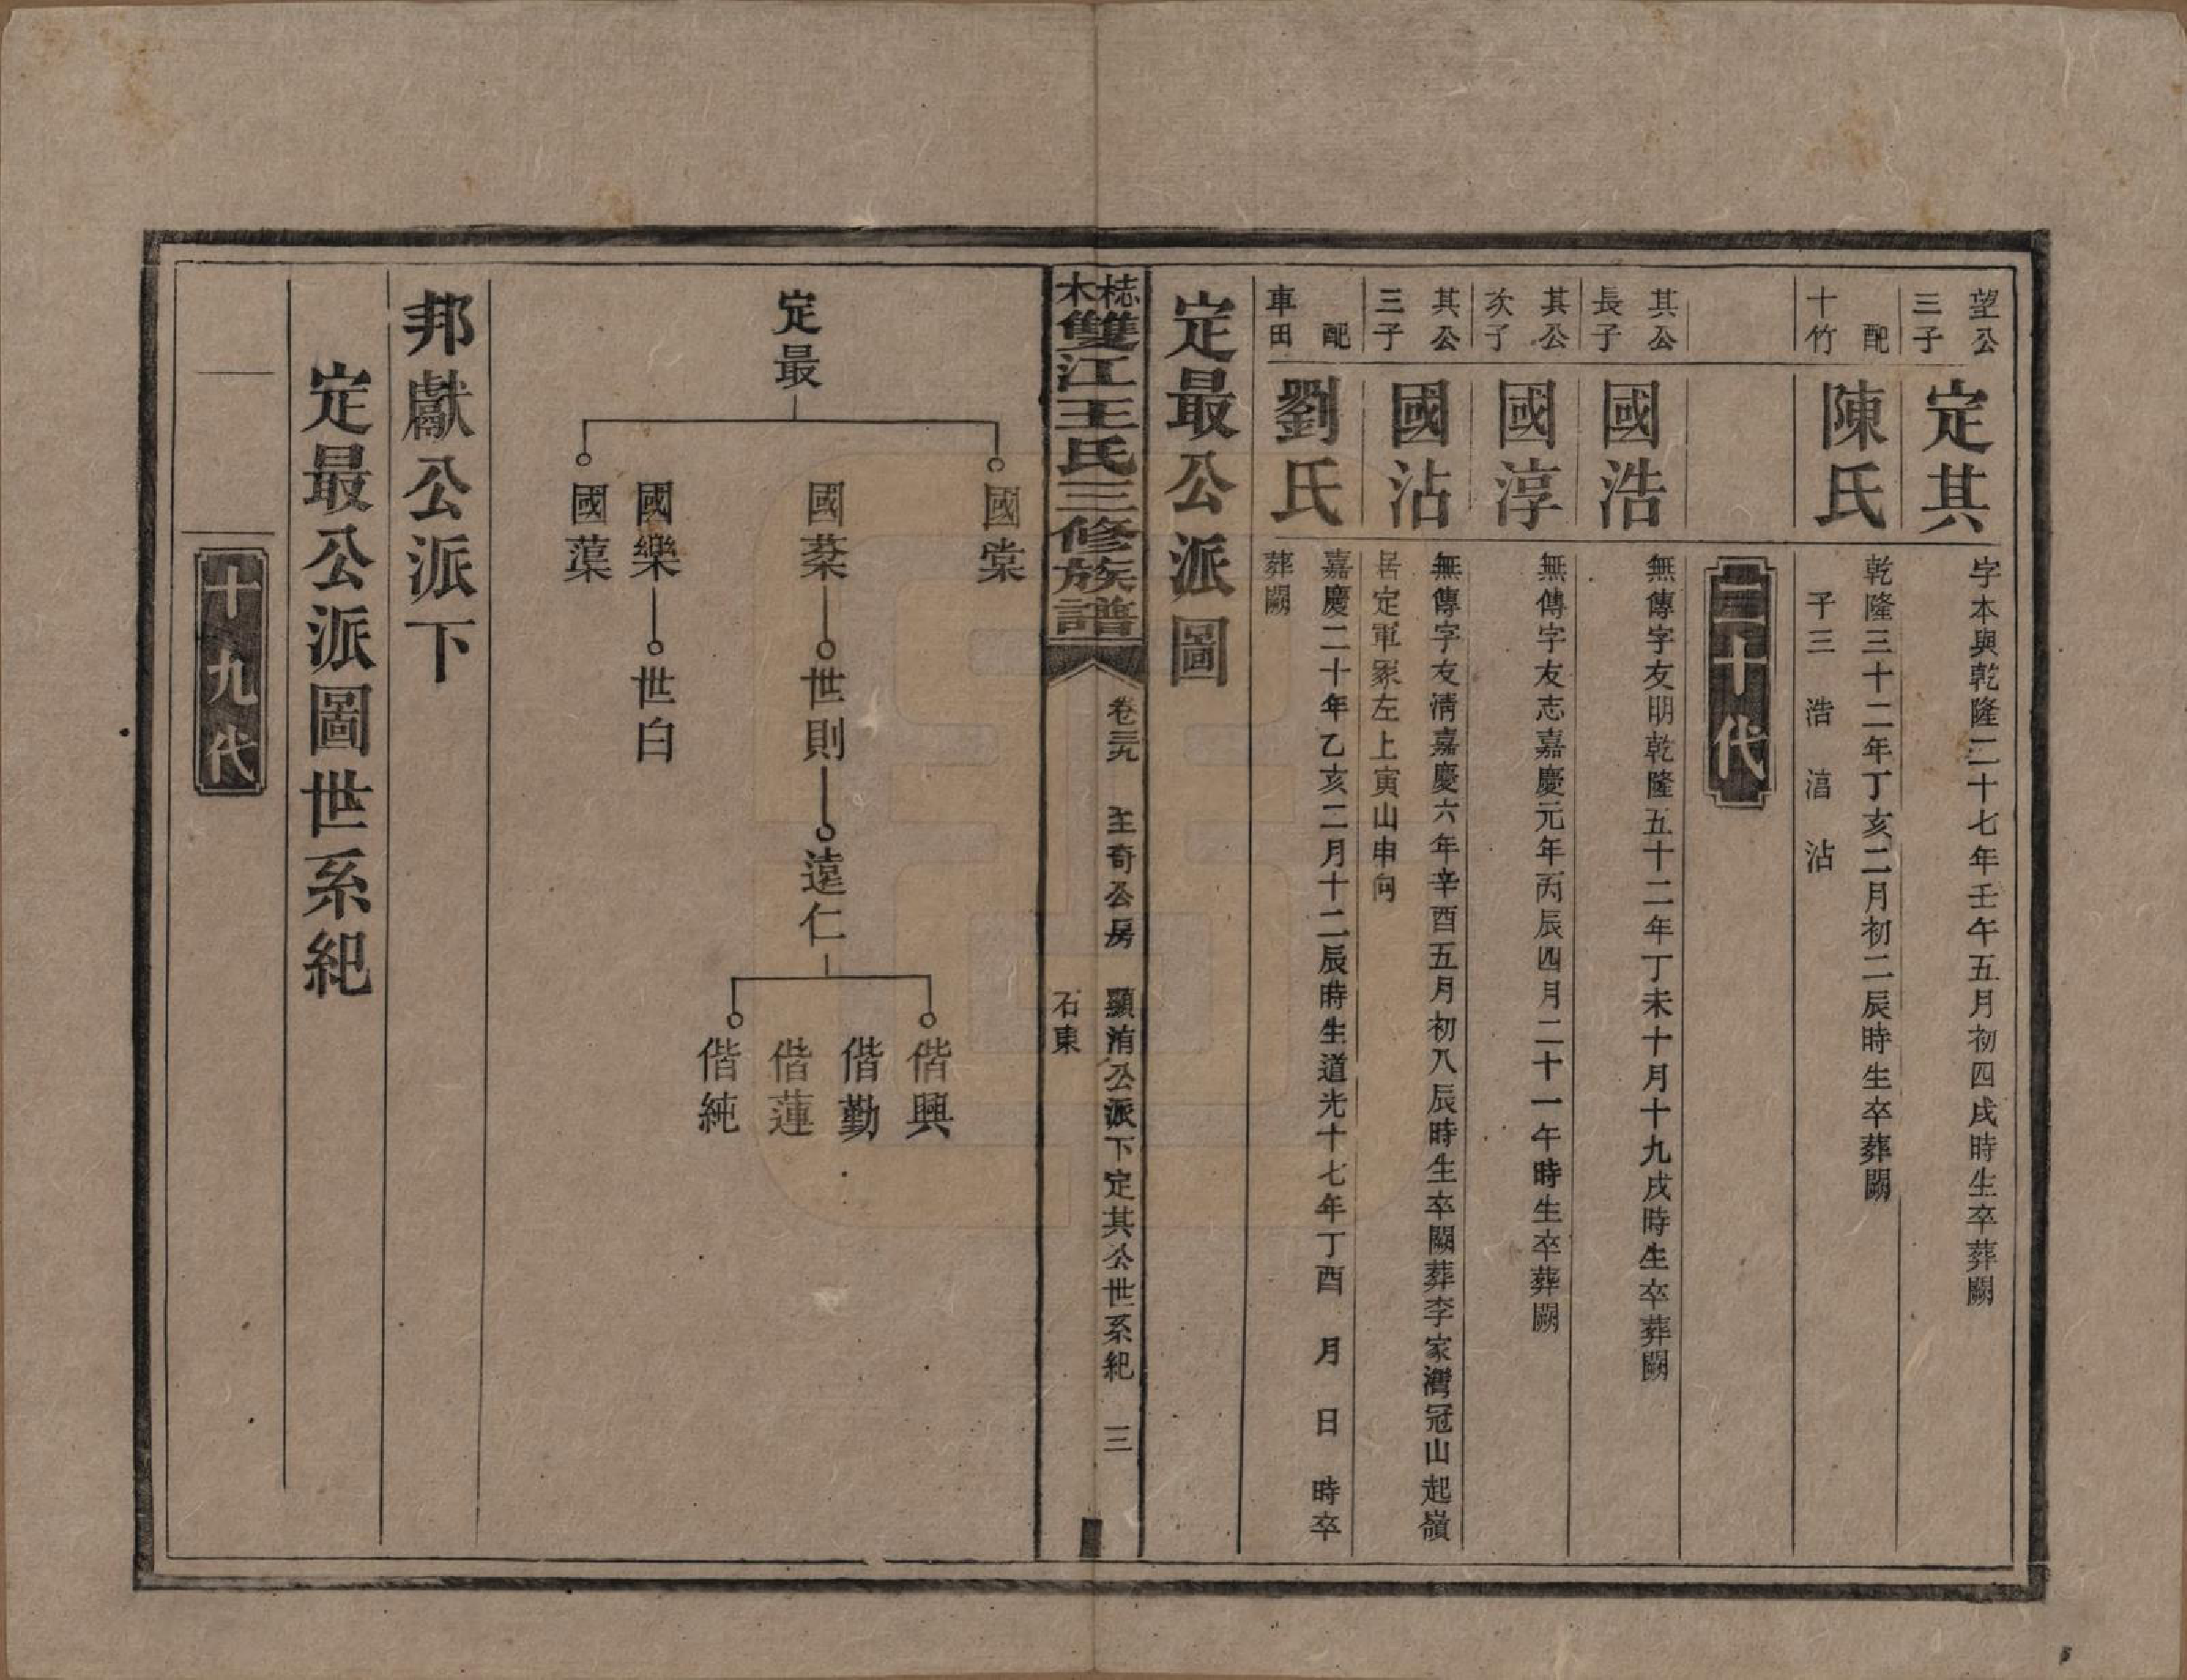 望公
三子
定其
字本與乾隆二十七年壬午五月初四戌時生卒葬闕
配
十竹
陳氏
乾隆三十二年丁亥二月初二辰時生卒葬闕
子三 浩 湻 沾
二十代
其公
長子
國浩
無傳字友明乾隆五十二年丁未十月十九戌時生卒葬闕
其公
次子
國淳
無傳字友志嘉慶元年丙辰四月二十一午時生卒葬闕
其公
三子
國沾
無傳字友清嘉慶六年辛酉五月初八辰時生卒闕葬李家灣冠山起嶺
居定軍冢左上寅山申向
配
車田
劉氏
嘉慶二十年乙亥二月十二辰時生道光十七年丁酉 月 日 時卒
葬闕
定最公派圖
梽木雙江王氏三修族譜
卷三九 主奇公房 顯洧公派下定其公世系紀 三
石東
定最
國棠
國棻
世則
遠仁
偕興
偕勤
偕蓮
偕純
國樂
世白
國蕖
邦獻公派下
定最公派圖世系紀
十九代